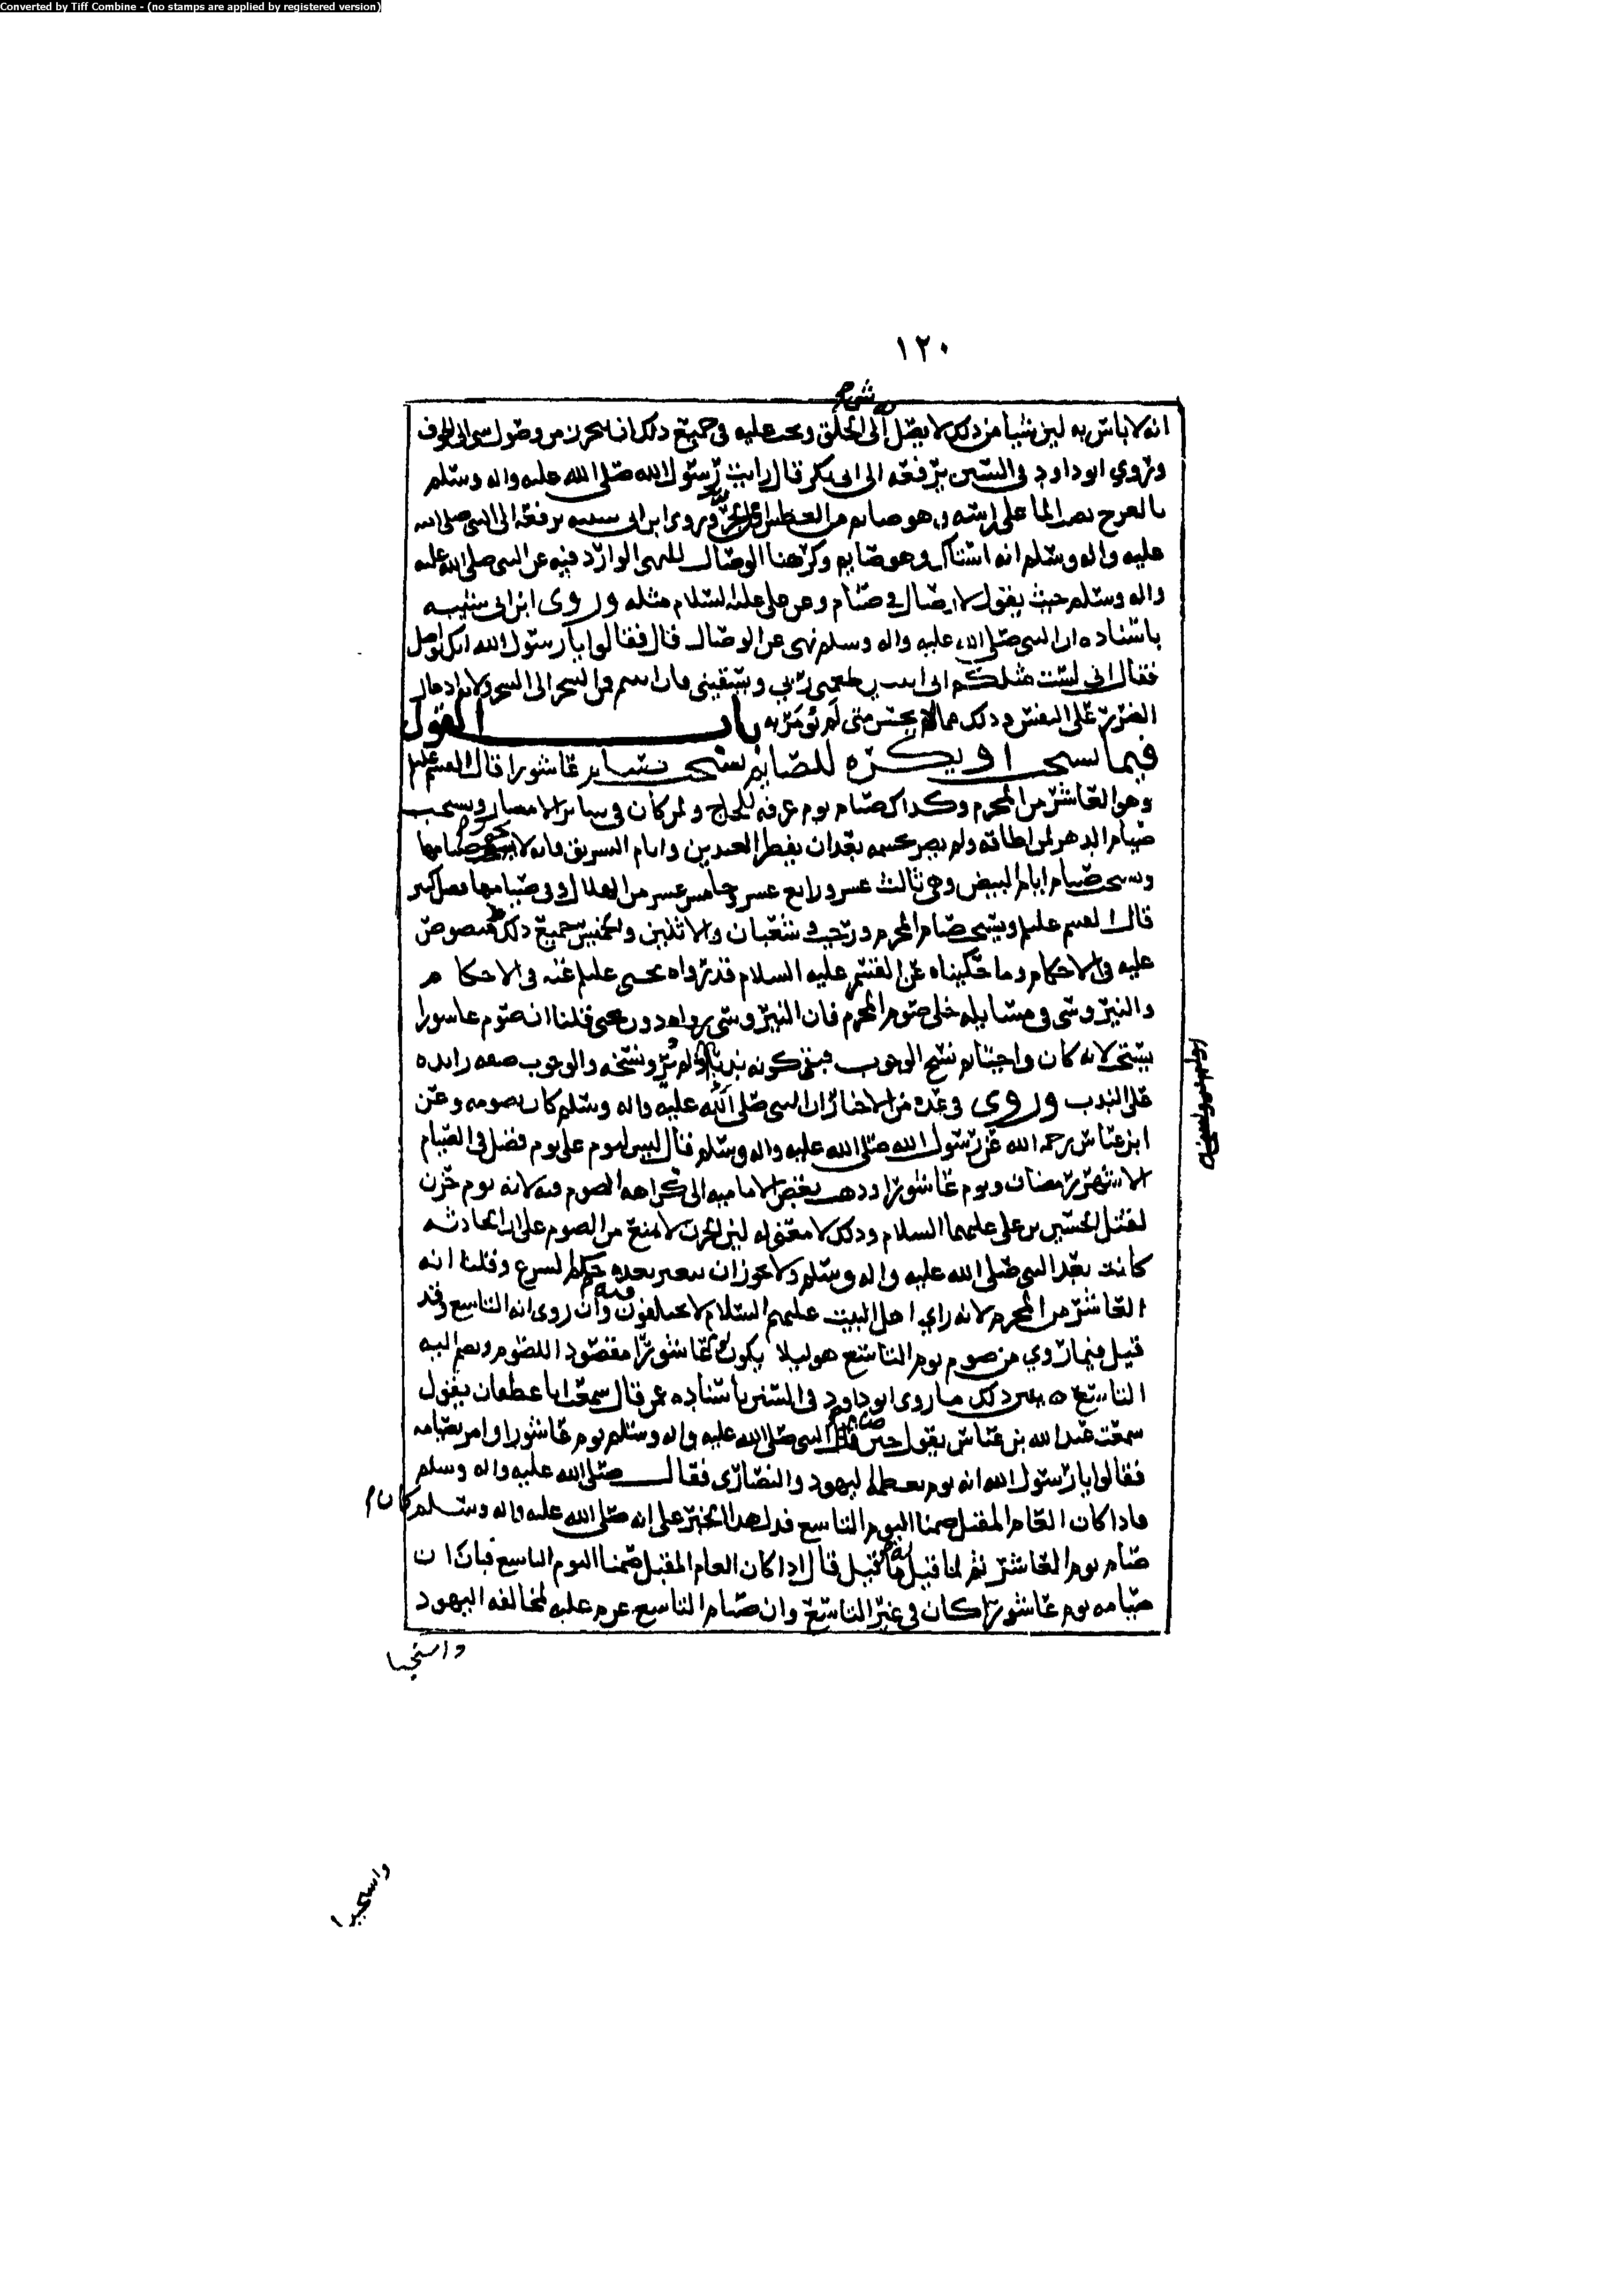 Converted by Tiff Combine - (no stamps are applied by registered version)
١٢٠
انه لا باس به لان شيا من ذلك لا يصل الى الحلق ويجب عليه في جميع ذلك ان يتحرز من وصول شي الى الجوف
وروي ابو داود في السنن يرفعه الى ابي بكر قال رايت رسول الله صلى الله عليه واله وسلم
بالعرج يصب الما على راسه وهو صايم من العطش او الحر وروى ابن ابي شيبه يرفعه الى النبي صلى الله
عليه واله وسلم انه استاك وهو صايم وكرهنا الوصال للنهي الوارد فيه عن النبي صلى الله عليه
واله وسلم حيث يقول لا وصال في صيام وعن علي عليه السلام مثله وروى ابن ابي شيبه
باسناده ان النبي صلى الله عليه واله وسلم نهى عن الوصال قال فقالوا يا رسول الله انك تواصل
فقال اني لست مثلكم اني ابيت يطعمني ربي ويسقيني من السحر الى السحر ولانه ادخال
الضرر على النفس وذلك مما لا يحسن متى لم نومر به باب القول
فيما يستحب او يكره للصايم يستحب صيام عاشورا قال القسم عليلم
وهو العاشر من المحرم وكذلك صيام يوم عرفه للحاج ولمن كان في ساير الامصار ويستحب
صيام الدهر لمن اطاقه ولم يضر بجسمه بعد ان يفطر العيدين وايام التشريق فانه لا يجوز صيامها
ويستحب صيام ايام البيض وهي ثالث عشر ورابع عشر وخامس عشر من الهلال وفي صيامها فضل كبير
قال القسم عليلم ويستحب صيام المحرم ورجب وشعبان والاثنين والخميس جميع ذلك منصوص
عليه في الاحكام وما حكيناه عن القسم عليه السلام قد رواه يحيى عليلم عنه في الاحكام
والنيروسي في مسايله خلى صوم المحرم فان النيروسي رواه دون يحيى قلنا ان صوم عاشورا
يستحب لانه كان واجبا ثم نسخ الوجوب فبقي كونه ندبا ولم يرد نسخه والوجوب صفه زايده
على الندب وروى في عده من الاخبار ان النبي صلى الله عليه واله وسلم كان يصومه وعن
ابن عباس رحمه الله عن رسول الله صلى الله عليه واله وسلم قال ليس ليوم على يوم فضل في الصيام
الا شهر رمضان ويوم عاشورا وذهب بعض الاماميه الى كراهه الصوم فيه لانه يوم حزن
لقتل الحسين بن علي عليهما السلام وذلك لا معنى له لان الحزن لا يمنع من الصوم على ان الحادثه
كانت بعد النبي صلى الله عليه واله وسلم ولا يجوز ان يتغير بعده حكم الشرع وقلنا انه
العاشر من المحرم لانه راي اهل البيت عليهم السلام لا يختلفون فيه وان روى انه التاسع وقد
قيل فيما روي من صوم يوم التاسع هو ليلا يكون يوم عاشورا مقصودا للصوم ويضم اليه
التاسع يبين ذلك ما روى ابو داود في السنن باسناده عن قال سمعت ابا غطفان يقول
سمعت عبد الله بن عباس يقول حين صام النبي صلى الله عليه واله وسلم يوم عاشورا وامر بصيامه
فقالوا يا رسول الله انه يوم يعظمه اليهود والنصارى فقال صلى الله عليه واله وسلم
فاذا كان العام المقبل صمنا اليوم التاسع فدل هذا الخبر على انه صلى الله عليه واله وسلم كان
صام يوم العاشر ثم لما قيل له ما قيل قال اذا كان العام المقبل صمنا اليوم التاسع فبان ان
صيامه يوم عاشورا كان في غير التاسع وان صيام التاسع عزم عليه لمخالفه اليهود
واستحبا